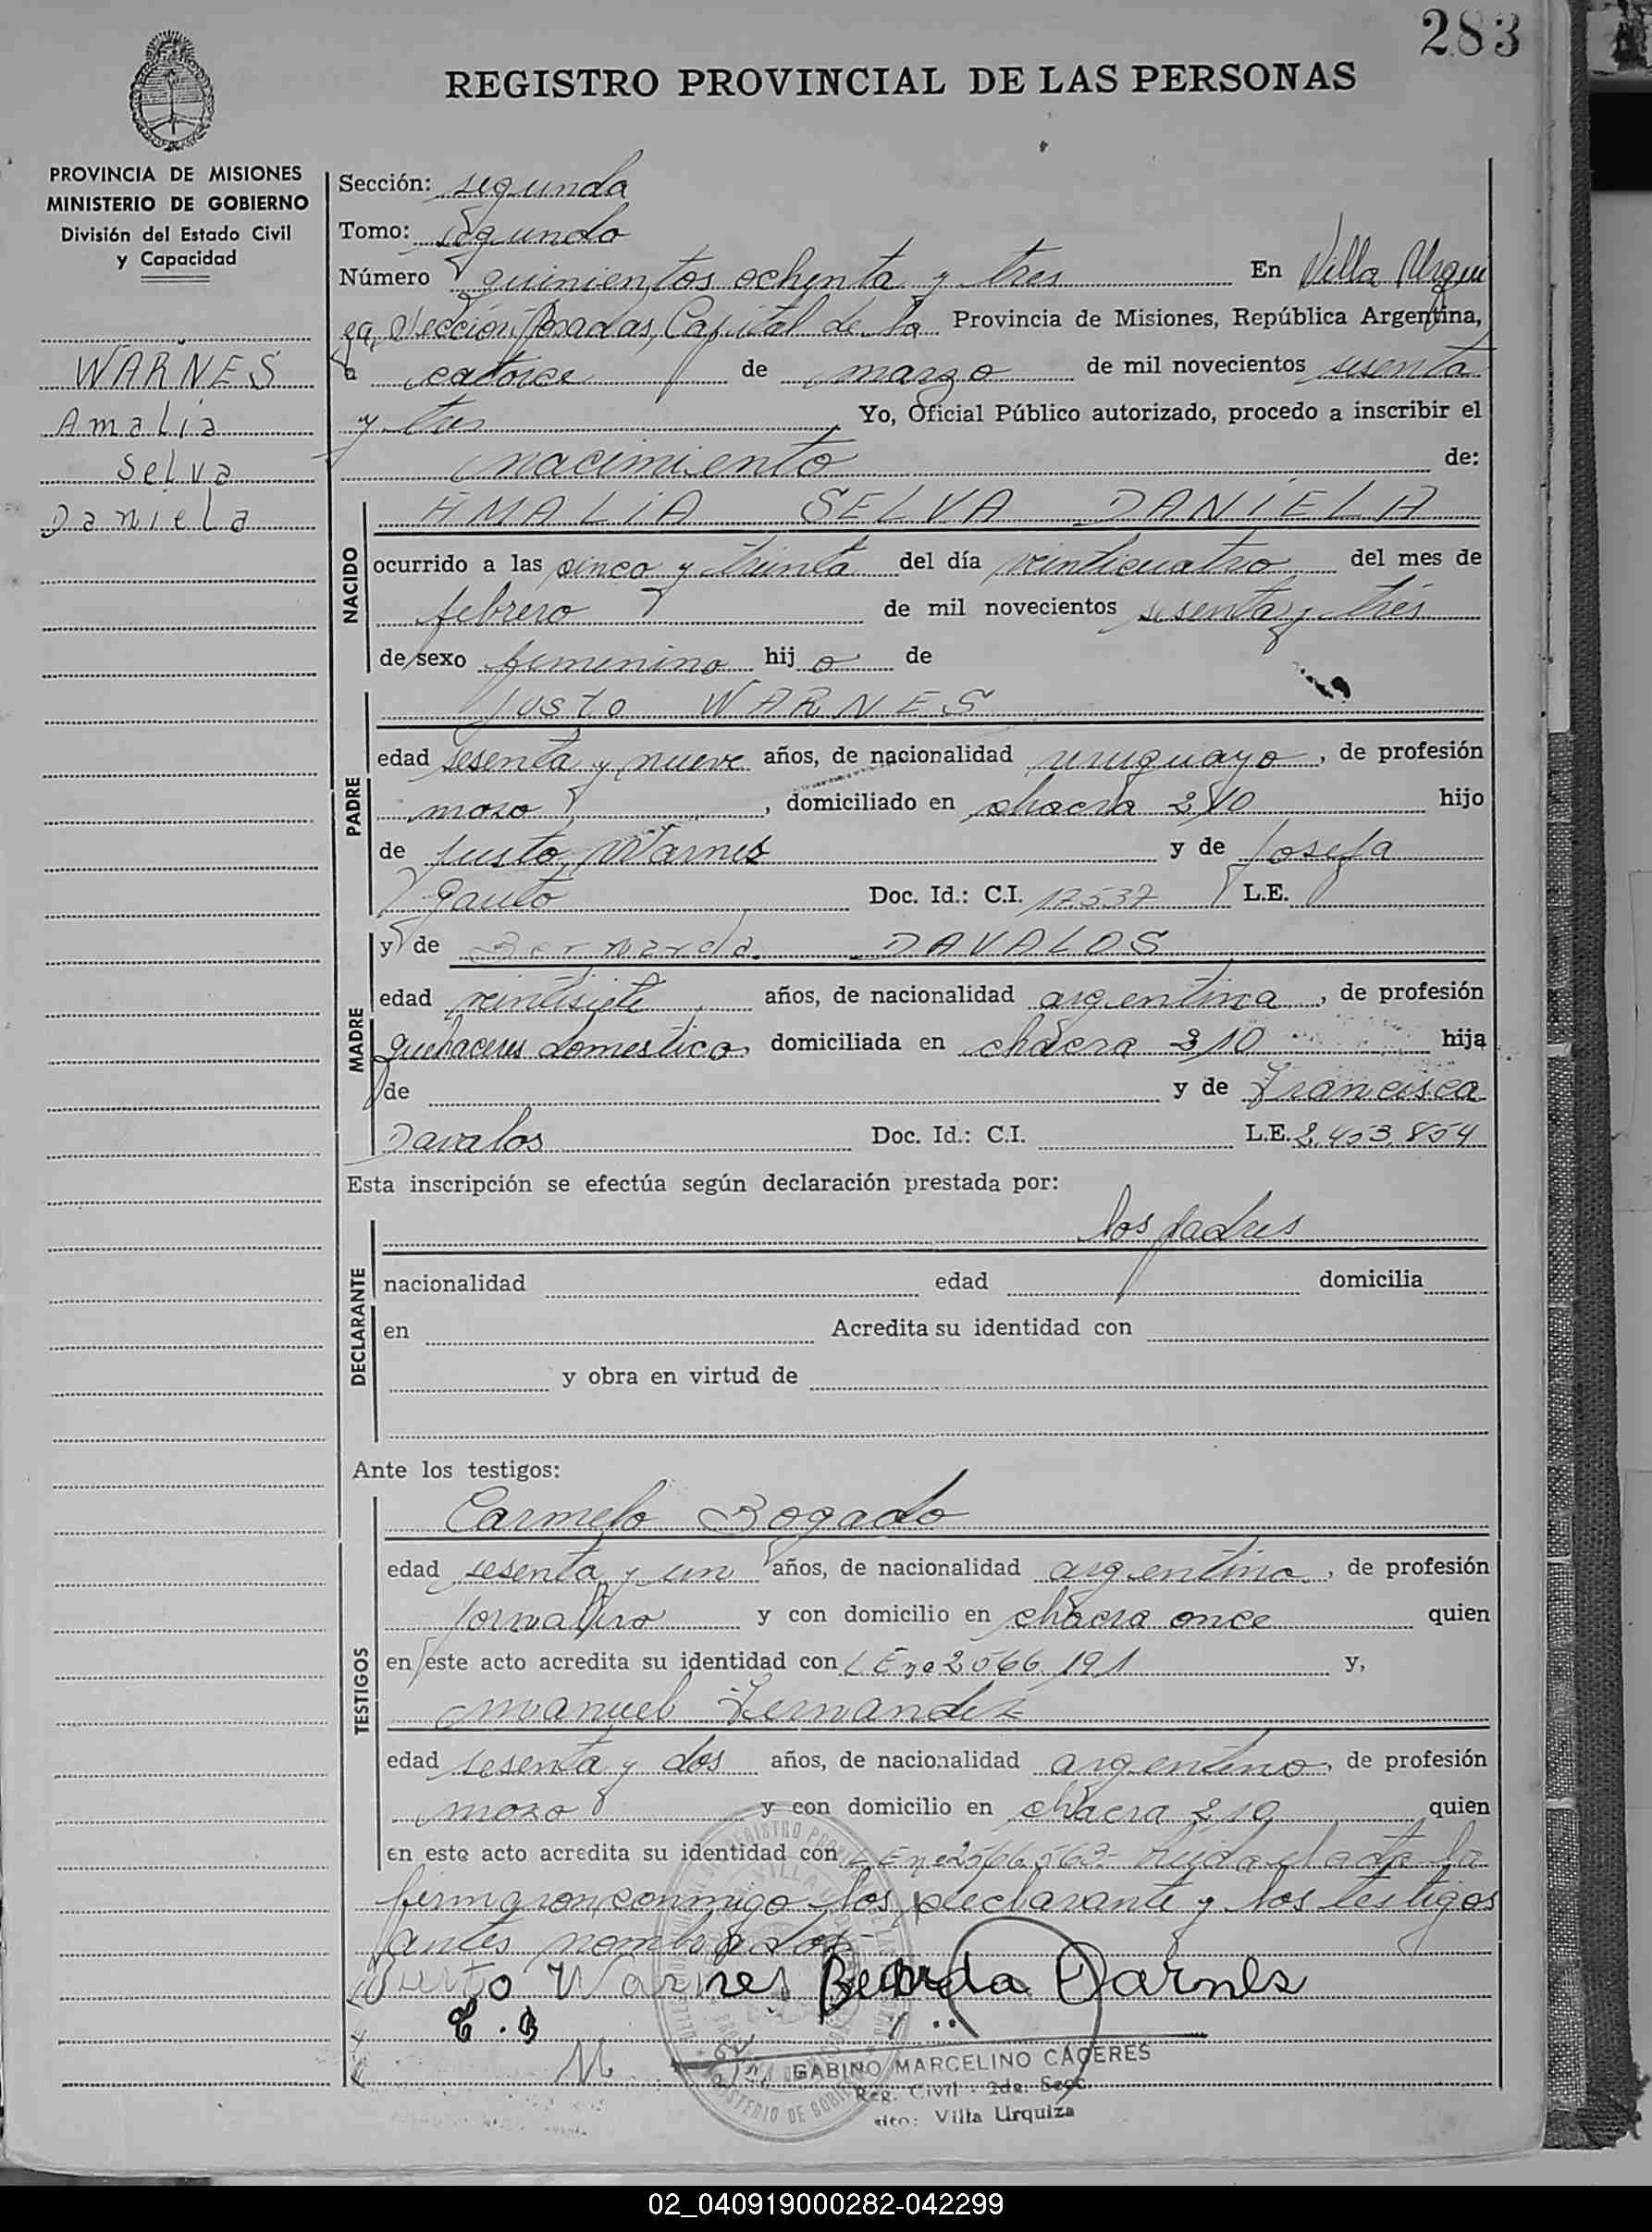 283
REGISTRO PROVINCIAL DE LAS PERSONAS
PROVINCIA DE MISIONES
MINISTERIO DE GOBIERNO
División del Estado Civil
y Capacidad
WARNES
Amalia
Selva
Daniela
Sección: segunda
Tomo: segundo
Número quinientos ochenta y tres En Villa Urqui
za, Sección Posadas, Capital de la Provincia de Misiones, República Argentina,
a catorce de marzo de mil novecientos sesenta
y tres Yo, Oficial Público autorizado, procedo a inscribir el
nacimiento de:
NACIDO
AMALIA SELVA DANIELA
ocurrido a las cinco y treinta del día veinticuatro del mes de
febrero de mil novecientos sesenta y tres
de sexo femenino hij o de
PADRE
Justo WARNES
edad sesenta y nueve años, de nacionalidad uruguayo, de profesión
mozo, domiciliado en chacra 210 hijo
de Justo Warnes y de Josefa
Gauto Doc. Id.: C.I. 17537 L.E.
MADRE
y de Bernarda DAVALOS
edad veintisiete años, de nacionalidad argentina, de profesión
quehaceres domestico, domiciliada en chacra 210 hija
de y de Francisca
Davalos Doc. Id.: C.I. L.E. 2.453.854
Esta inscripción se efectúa según declaración prestada por:
DECLARANTE
los padres
nacionalidad edad domicilia
en Acredita su identidad con
y obra en virtud de
Ante los testigos:
TESTIGOS
Carmelo Bogado
edad sesenta y un años, de nacionalidad argentino, de profesión
jornalero y con domicilio en chacra once quien
en este acto acredita su identidad con LE nº 2566.191 y,
Manuel Fernandez
edad sesenta y dos años, de nacionalidad argentino, de profesión
mozo y con domicilio en chacra 210 quien
en este acto acredita su identidad con LE nº 2566.563- leida el acta la
firmaron conmigo los declarante y los testigos
antes nombrados-
Justo Warnes Warnes
C. B
GABINO MARCELINO CACERES
Reg. Civil - 2da. Secc.
sito: Villa Urquiza
02_040919000282-042299